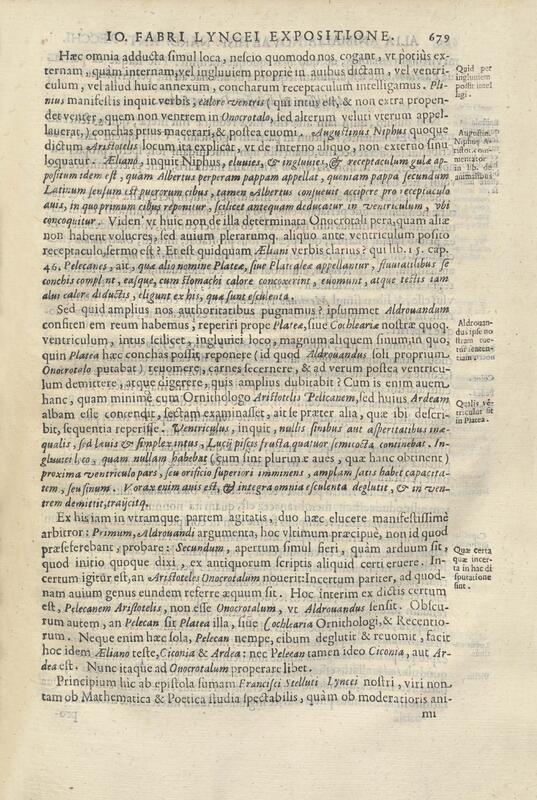 IO. FABRI LYNCEI EXPOSITIONE. 679
Hæc omnia adducta simul loca, nescio quomodo nos cogant, vt potiùs ex-
ternam, quàm internam, vel ingluuiem proprie in auibus dictam, vel ventri-
culum, vel aliud huic annexum, concharum receptaculum intelligamus. Pli-
nius manifestis inquit verbis, calore ventris (qui intus est, & non extra propen-
det venter, quem non ventrem in Onocrotalo, sed alterum veluti vterum appel-
lauerat,) conchas priùs macerari, & postea euomi. Augustinus Niphus quoque
dictum Aristotelis locum ita explicat, vt de interno aliquo, non externo sinu
loquatur. Æliano, inquit Niphus, eluuies, & ingluuies, & receptaculum gulæ ap-
positum idem est, quàm Albertus perperam pappam appellat, quoniam pappa secundum
Latinum sensum est puerorum cibus, tamen Albertus consueuit accipere pro receptaculo
auis, in quo primum cibus reponitur, scilicet antequam deducatur in ventriculum, vbi
concoquitur. Viden' vt huic non de illa determinata Onocrotali pera, quam aliæ
non habent volucres, sed auium plerarumq. aliquo ante ventriculum posito
receptaculo, sermo est? Et est quidquam Æliani verbis clarius? qui lib. 15. cap.
46, Pelecanes, ait, quæ alio nomine Plateæ, siue Platealeæ appellantur, fluuiatilibus se
conchis complent, easque, cum stomachi calore concoxerint, euomunt, atque testis iam
alui calore diductis, eligunt ex his, quæ sunt esculenta.
Sed quid amplius nos authoritatibus pugnamus? ipsummet Aldrouandum
confitentem reum habemus, reperiri prope Plateæ, siue Cochleariæ nostræ quoq.
ventriculum, intus scilicet, ingluuiei loco, magnum aliquem sinum, in quo,
quin Platea hæc conchas possit reponere (id quod Aldrouandus soli proprium
Onocrotalo putabat) reuomere, carnes secernere, & ad verum postea ventricu-
lum demittere, atque digerere, quis amplius dubitabit? Cum is enim auem
hanc, quam minimè cum Ornithologo Aristotelis Pelicanem, sed huius Ardeam
albam esse contendit, sectam examinasset, ait se præter alia, quæ ibi descri-
bit, sequentia reperisse. Ventriculus, inquit, nullis sinibus aut asperitatibus inæ-
qualis, sed læuis & simplex intus, Lucij piscis frusta quatuor semicocta continebat. In-
gluuiei loco, quam nullam habebat (cum sint plurimæ aues, quæ hanc obtinent)
proxima ventriculo pars, seu orificio superiori imminens, amplam satis habet capacita-
tem, seu sinum. Vorax enim auis est, & integra omnia esculenta deglutit, & in ven-
trem demittit, traijcitq.
Ex his iam in vtramque partem agitatis, duo hæc elucere manifestissimè
arbitror: Primum, Aldrouandi argumenta, hoc vltimum præcipuè, non id quod
præseferebant, probare: Secundum, apertum simul fieri, quàm arduum sit,
quod initio quoque dixi, ex antiquorum scriptis aliquid certi eruere. In-
certum igitur est, an Aristoteles Onocrotalum nouerit: Incertum pariter, ad quod-
nam auium genus eundem referre æquum sit. Hoc interim ex dictis certum
est, Pelecanem Aristotelis, non esse Onocrotalum, vt Aldrouandus sensit. Obscu-
rum autem, an Pelecan sit Platea illa, siue Cochlearia Ornithologi, & Recentio-
rum. Neque enim hæc sola, Pelecan nempe, cibum deglutit & reuomit, facit
hoc idem Æliano teste, Ciconia & Ardea: nec Pelecan tamen ideo Ciconia, aut Ar-
dea est. Nunc itaque ad Onocrotalum properare libet.
Principium hìc ab epistola sumam Francisci Stelluti Lyncei nostri, viri non
tam ob Mathematica & Poetica studia spectabilis, quàm ob moderatioris ani-
mi
Quid per
ingluuiem
possit intel
ligi.
Augustin.
Niphus A-
ristot. com-
mentator
in lib. de
animalibus
Aldrouan-
dus ipse no
stram tue-
tur senten-
tiam
Qualis vē-
triculus sit
in Platea.
Quæ certa
quæ incer-
ta in hac di
sputatione
sint.